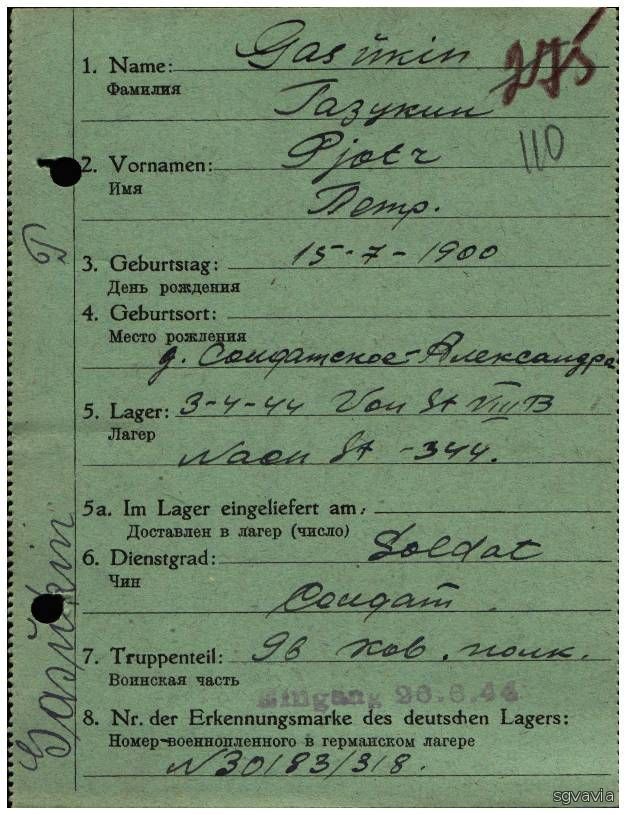 1. Name: Gasŭkin 275
Фамилия Газукин
110
2. Vornamen: Pjotr
Имя Петр.
3. Geburtstag: 15-7-1900
День рождения
4. Geburtsort:
Место рождения
д. Солдатское-Александра
5. Lager: 3-4-44 Von St VIII B
Лагер
Nach St -344.
5a. Im Lager eingeliefert am:
Доставлен в лагер (число)
6. Dienstgrad: Soldat
Чин
Солдат.
7. Truppenteil: 96 полк.
Воинская часть
Eingang 26.6.44
8. Nr. der Erkennungsmarke des deutschen Lagers:
Номер военнопленного в германском лагере
N30183/318.
P
sgvavia